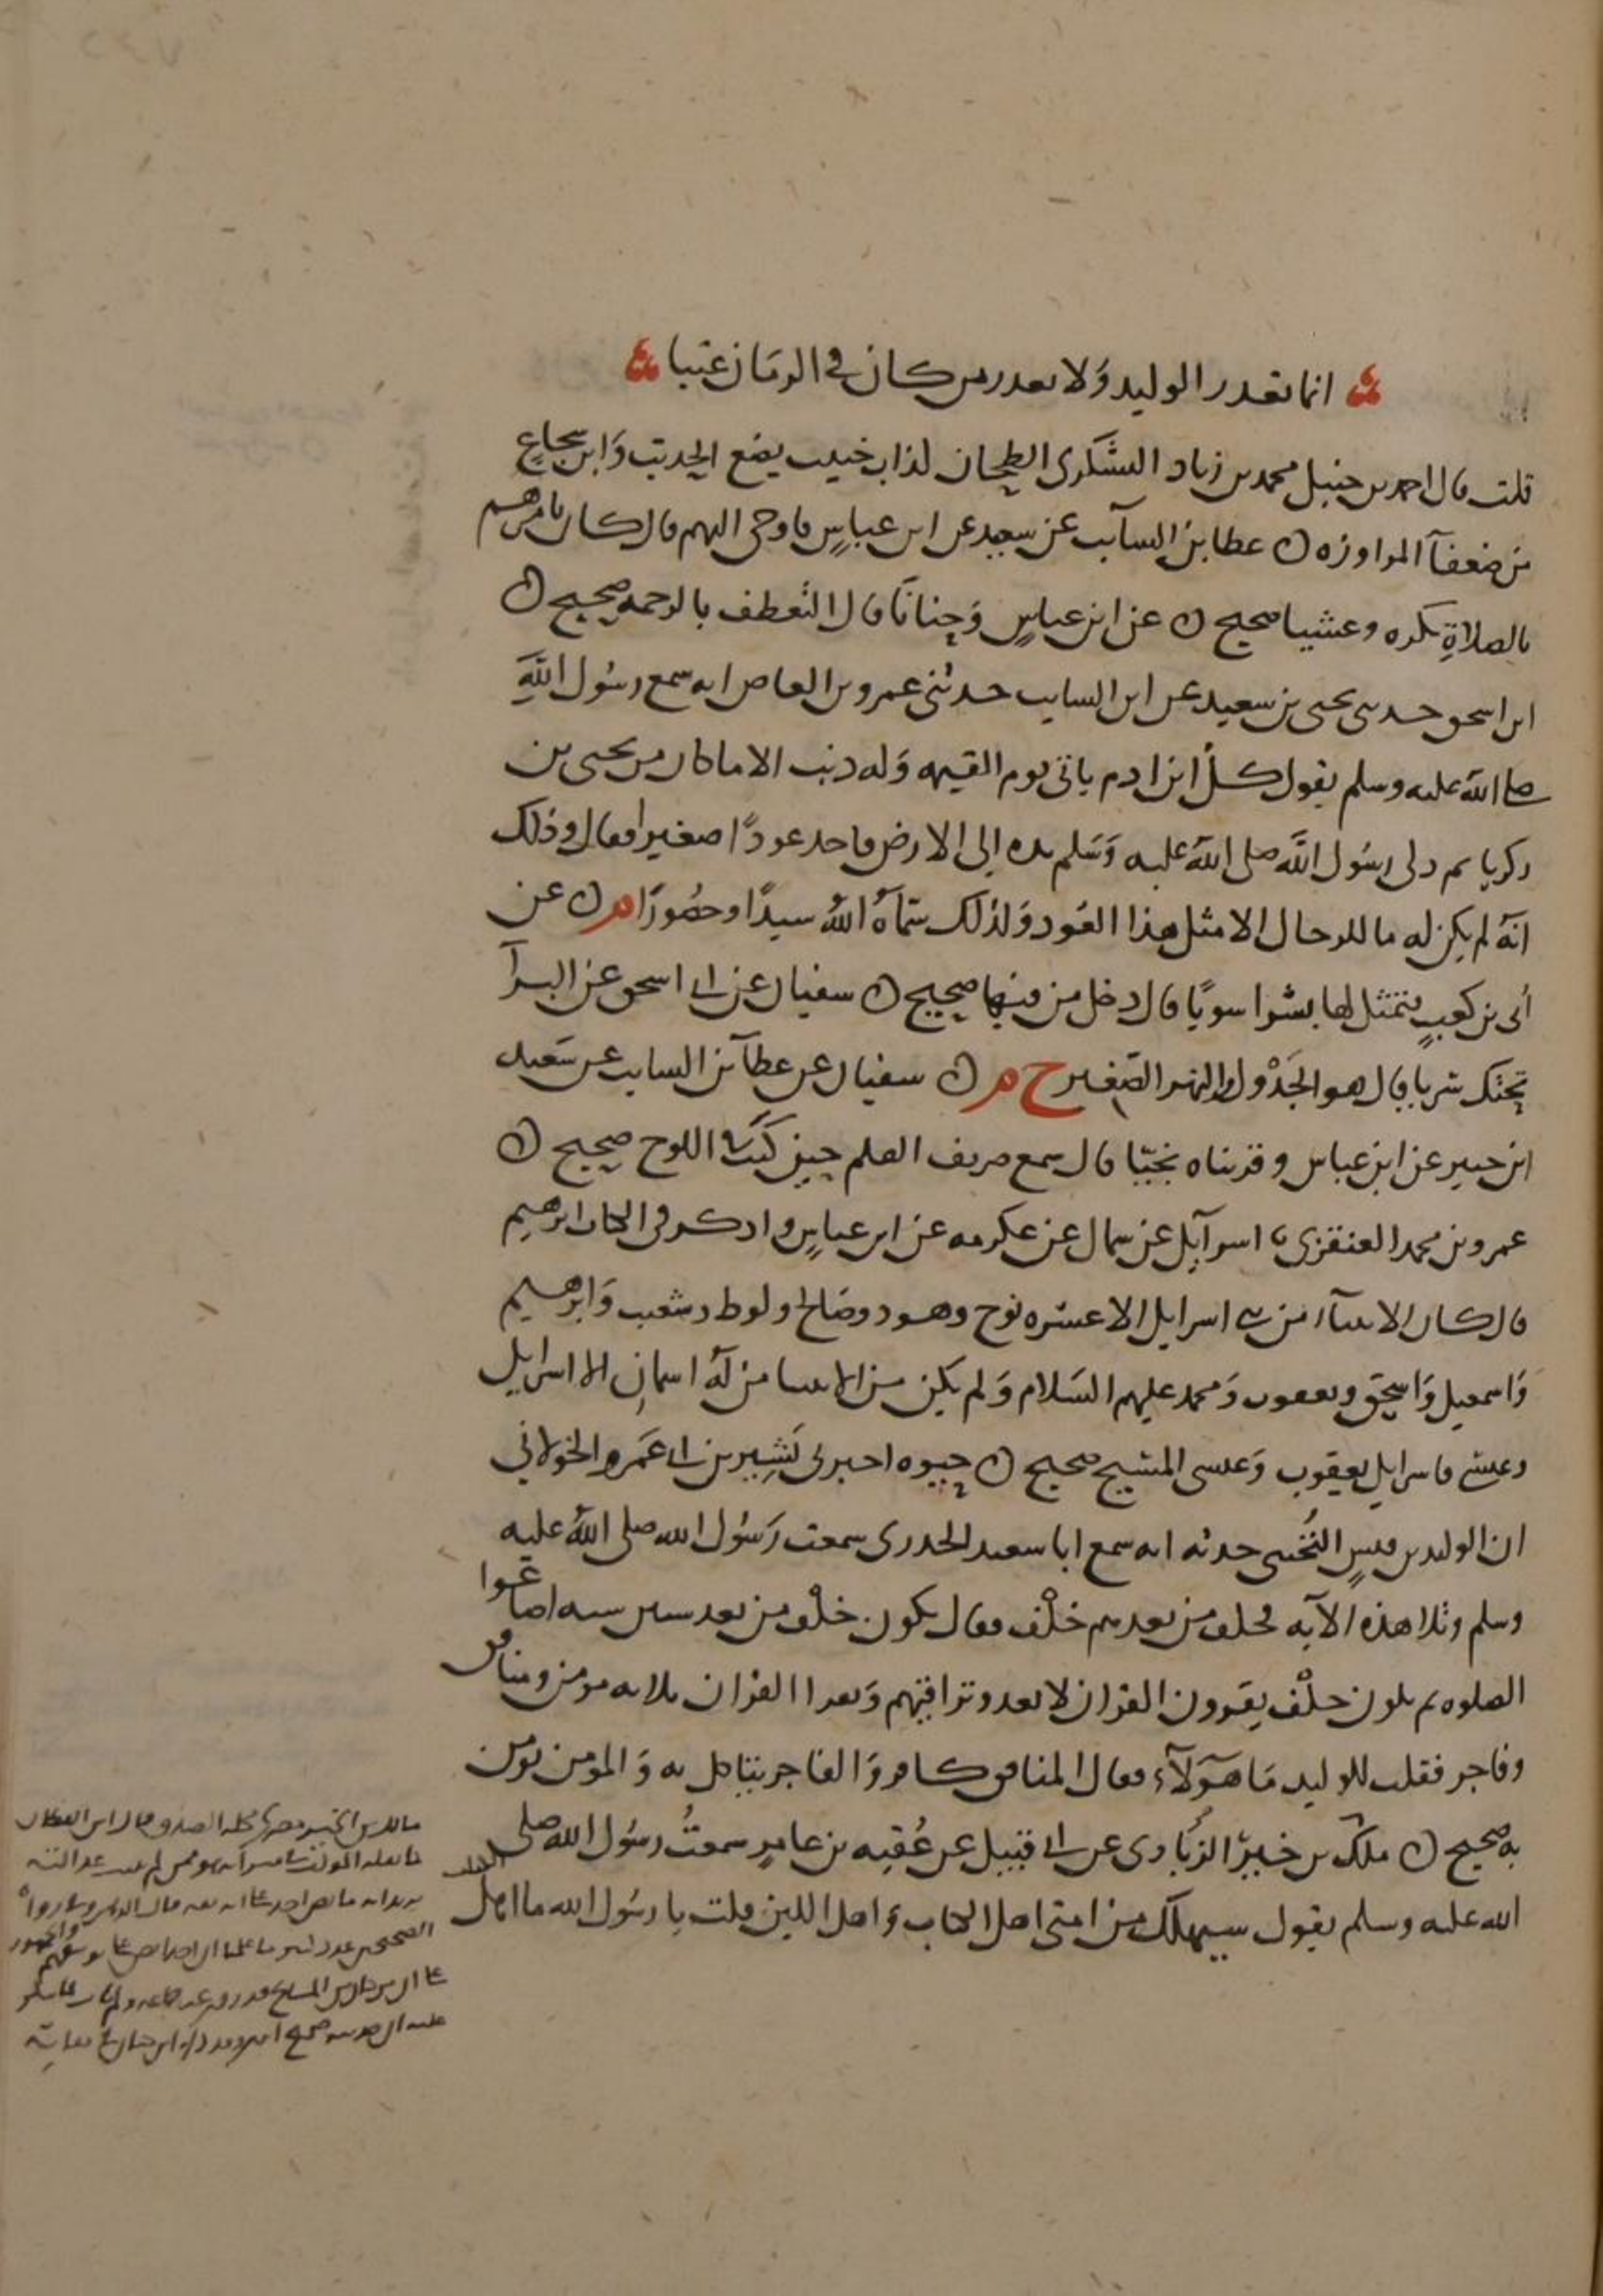 انما يعذر الوليد ولا يعذر من كان في الزمان عتيا
قلت قال احمد بن حنبل محمد بن زياد اليشكري الطحان كذاب خبيث يضع الحديث وابن شجاع
من ضعفآ المراوزه ن عطا بن السآيب عن سعيد عن ابن عباس فاوحى اليهم قال كان يامرهم
بالصلاة بكره وعشيا صحيح ن عن ابن عباس وحنانا قال التعطف بالرحمه صحيح ن
ابن اسحق حدثني يحيى بن سعيد عن ابن السايب حدثني عمرو بن العاص انه سمع رسول الله
صلى الله عليه وسلم يقول كل ابن ادم ياتي يوم القيمه وله ذنب الا ما كان من يحيى بن
زكريا ثم دلى رسول الله صلى الله عليه وسلم يده الى الارض فاخذ عودا صغيرا فقال وذلك
انه لم يكن له ما للرجال الا مثل هذا العود ولذلك سماه الله سيدا وحصورا م ن عن
أبي بن كعب فتمثل لها بشرا سويا قال دخل من فيها صحيح ن سفيان عن ابي اسحق عن البرآ
تحتك سريا قال هو الجدول والنهر الصغير خ م ن سفيان عن عطآ بن السايب عن سعيد
ابن جبير عن ابن عباس وقربناه نجيا قال سمع صريف القلم حين كتب اللوح صحيح ن
عمرو بن محمد العنقزي نا اسرآيل عن سماك عن عكرمه عن ابن عباس واذكر في الكتاب ابرهيم
قال كان الانبيآء من بني اسرايل الا عشره نوح وهود وصالح ولوط وشعيب وابرهيم
واسمعيل واسحق ويعقوب ومحمد عليهم السلام ولم يكن من الانبيا من له اسمان الا اسرايل
وعيسى فاسرايل يعقوب وعيسى المسيح صحيح ن حيوه اخبرني بشير بن ابي عمرو الخولاني
ان الوليد بن قيس التجيبي حدثه انه سمع ابا سعيد الخدري سمعت رسول الله صلى الله عليه
وسلم وتلا هذه الآيه فخلف من بعدهم خلف فقال يكون خلف من بعد ستين سنه اضاعوا
الصلوه ثم يكون خلف يقرون القران لا يعدو تراقيهم ويقرا القران ثلاثه مومن ومنافق
وفاجر فقلت للوليد ما هولآء فقال المنافق كافر والفاجر يتاكل به والمومن يومن
به صحيح ن ملك بن خير الزبادي عن ابي قبيل عن عقبه بن عامر سمعت رسول الله صلى
الله عليه وسلم يقول سيهلك من امتي اهل الكتاب واهل اللبن قلت يا رسول الله ما اهل
الكتاب
مالك بن الخير مصري محله الصدق قال ابن القطان
هو ممن لم تثبت عدالته
يريد انه ما نص احد على انه ثقه قال الذهبي وفي رواة
الصحيحين عدد كثير ما علمنا ان احدا نص على توثيقهم والجمهور
على ان من كان من المشايخ قد روى عنه جماعه ولم يات بما ينكر
عليه ان حديثه صحيح انتهى وقد ذكره ابن حبان في ثقاته